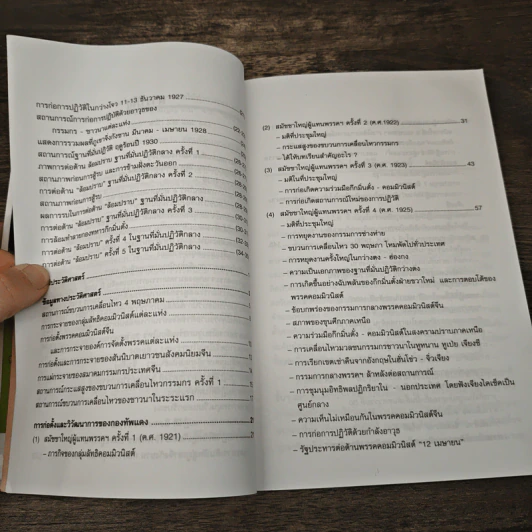 การก่อการปฏิวัติในกว่างโจว 11-13 ธันวาคม 1927
สถานการณ์การก่อการปฏิบัติด้วยอาวุธของ
กรรมกร - ชาวนาแต่ละแห่ง
แสดงการรวมพลที่ภูเขาจิ่งกังซาน มีนาคม - เมษายน 1928
สถานการณ์ฐานที่มั่นปฏิวัติ ฤดูร้อนปี 1930
ภาพการต่อต้าน "ล้อมปราบ" ฐานที่มั่นปฏิวัติกลาง ครั้งที่ 1
สถานภาพก่อนการสู้รบ และการข้ามฝั่งตะวันออก
การต่อต้าน "ล้อมปราบ" ฐานที่มั่นปฏิวัติกลาง ครั้งที่ 2
สถานภาพก่อนการสู้รบ
ผลการรบในการต่อต้าน "ล้อมปราบ" ฐานที่มั่นปฏิวัติกลาง
การต่อต้าน "ล้อมปราบ" ฐานที่มั่นปฏิวัติกลาง ครั้งที่ 3
การล้อมทำลายกองทหารก๊กมินตั๋ง
การต่อต้าน "ล้อมปราบ" ครั้งที่ 4 ในฐานที่มั่นปฏิวัติกลาง
การต่อต้าน "ล้อมปราบ" ครั้งที่ 5 ในฐานที่มั่นปฏิวัติกลาง
ประวัติศาสตร์
ข้อมูลทางประวัติศาสตร์
สถานการณ์ขบวนการเคลื่อนไหว 4 พฤษภาคม
การกระจายของกลุ่มลัทธิคอมมิวนิสต์แต่ละแห่ง
การก่อตั้งพรรคคอมมิวนิสต์จีน
และการกระจายองค์การจัดตั้งพรรคแต่ละแห่ง
การก่อตั้งและการกระจายของสันนิบาตเยาวชนสังคมนิยมจีน
การแผ่กระจายของสมาคมกรรมกรประเทศจีน
สถานการณ์กระแสสูงของขบวนการเคลื่อนไหวกรรมกร ครั้งที่ 1
สถานการณ์ขบวนการเคลื่อนไหวของชาวนาในระยะแรก
การก่อตั้งและวิวัฒนาการของกองทัพแดง
(1) สมัชชาใหญ่ผู้แทนพรรคฯ ครั้งที่ 1 (ค.ศ. 1921)
– ภารกิจของกลุ่มลัทธิคอมมิวนิสต์
(2) สมัชชาใหญ่ผู้แทนพรรคฯ ครั้งที่ 2 (ค.ศ.1922) 31
– มติที่ประชุมใหญ่
– กระแสสูงของขบวนการเคลื่อนไหวกรรมกร
– ได้ให้บทเรียนสำคัญอะไร ?
(3) สมัชชาใหญ่ผู้แทนพรรคฯ ครั้งที่ 3 (ค.ศ. 1923) 43
– มติในที่ประชุมใหญ่
– การก่อเกิดความร่วมมือก๊กมินตั๋ง - คอมมิวนิสต์
– การก่อเกิดสถานการณ์ใหม่ของการปฏิวัติ
(4) สมัชชาใหญ่ผู้แทนพรรคฯ ครั้งที่ 4 (ค.ศ. 1925) 57
– มติที่ประชุมใหญ่
– การหยุดงานของกรรมการช่างท่าย
– ขบวนการเคลื่อนไหว 30 พฤษภา โหมพัดไปทั่วประเทศ
– การหยุดงานครั้งใหญ่ในกว่างตง - ฮ่องกง
– ความเป็นเอกภาพของฐานที่มั่นปฏิวัติกว่างตง
– การเกิดขึ้นอย่างฉับพลันของก๊กมินตั๋งฝ่ายขวาใหม่ และการตอบโต้ของ
พรรคคอมมิวนิสต์
– ข้อบกพร่องของกรรมการกลางพรรคคอมมิวนิสต์จีน
– สภาพของขุนศึกภาคเหนือ
– ความร่วมมือก๊กมินตั๋ง - คอมมิวนิสต์ในสงครามปราบภาคเหนือ
– การเคลื่อนไหวมวลชนกรรมกรชาวนาในหูหนาน หูเป่ย เจียงซี
– การเรียกเขตเช่าคืนจากอังกฤษในฮั่นโข่ว - จิ่วเจียง
– กรรมการกลางพรรคฯ ล้าหลังต่อสถานการณ์
– การชุมนุมอิทธิพลปฏิกริยาใน - นอกประเทศ โดยพึงเจียงไคเช็คเป็น
ศูนย์กลาง
– ความเห็นไม่เหมือนกันในพรรคคอมมิวนิสต์จีน
– การก่อการปฏิวัติด้วยกำลังอาวุธ
– รัฐประหารต่อต้านพรรคคอมมิวนิสต์ "12 เมษายน"